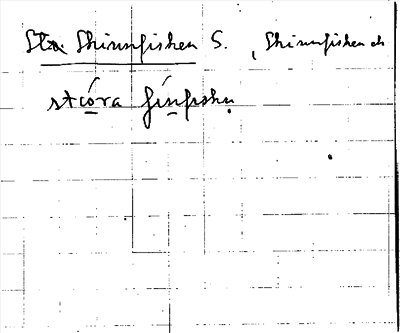 St:a Skinnfisken S. , Skinnfisken
stóra ʃínfiskn